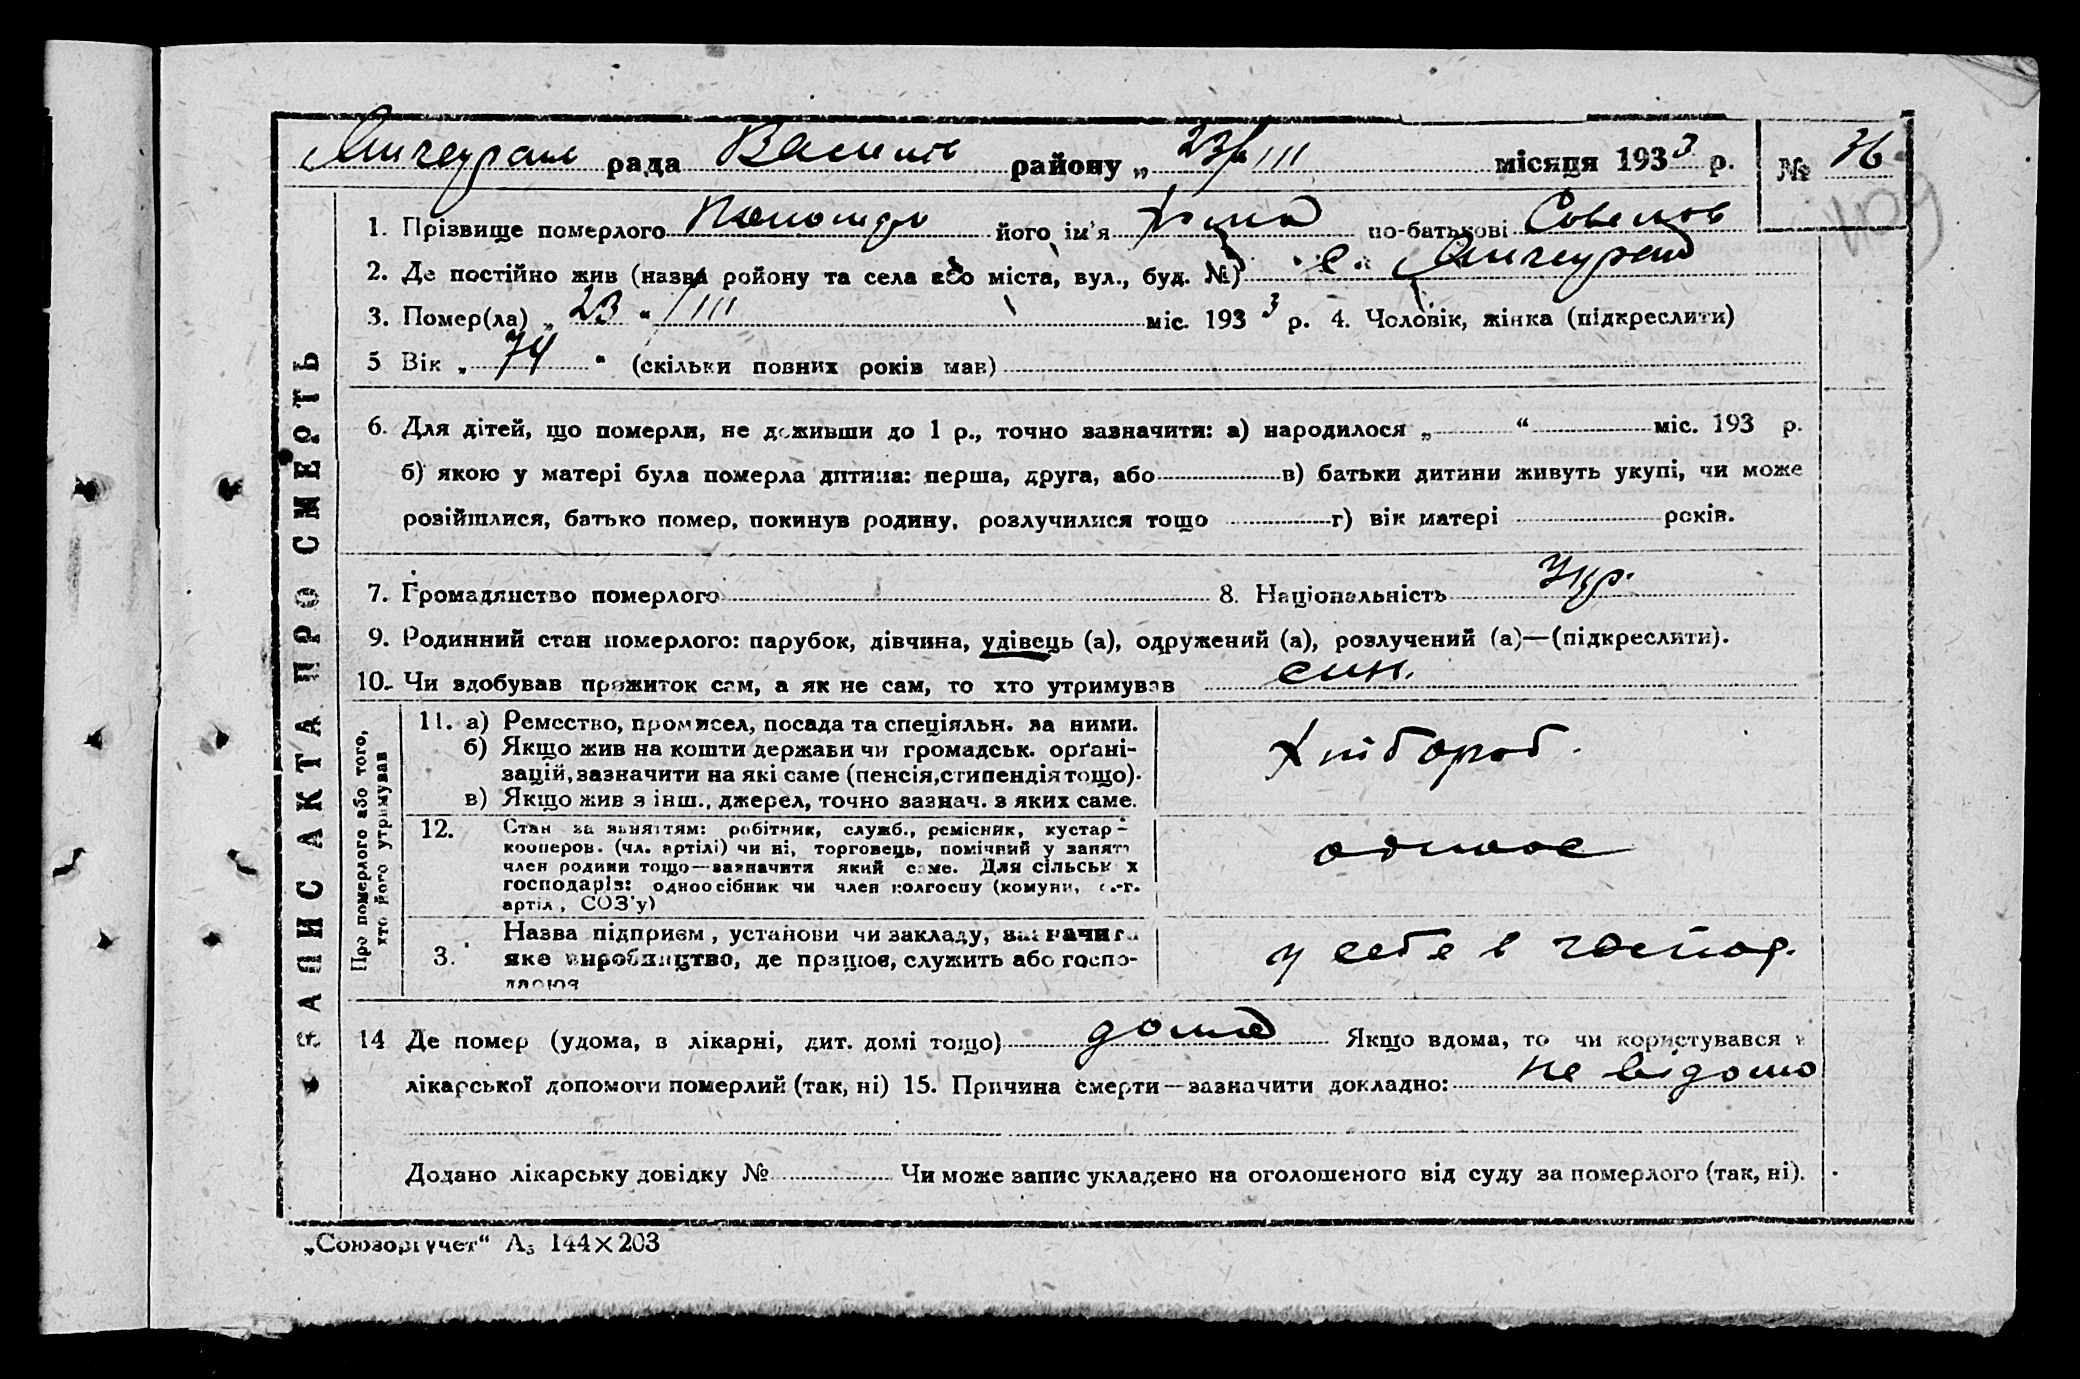 рада Василів району „ 23/III місяця 1933 р. № 36
1. Прізвище померлого його ім'я Хома по-батькові
2. Де постійно жив (назва ройону та села або міста, вул., буд. №) с.
3. Помер(ла) „ 23 “ III міс. 1933 р. 4. Чоловік, жінка (підкреслити)
5 Вік „ 74 “ (скільки повних років мав)
6. Для дітей, що померли, не доживши до 1 р., точно зазначити: а) народилося „ “ міс. 193 р.
б) якою у матері була померла дитина: перша, друга, або в) батьки дитини живуть укупі, чи може
розійшлися, батько помер, покинув родину, розлучилися тощо г) вік матері років.
7. Громадянство померлого 8. Національність Укр.
9. Родинний стан померлого: парубок, дівчина, удівець (а), одружений (а), розлучений (а)—(підкреслити).
10. Чи здобував прожиток сам, а як не сам, то хто утримував син.
ЗАПИС АКТА ПРО СМЕРТЬ
Про померлого або того,
хто його утримував
11. а) Ремество, промисел, посада та спеціяльн. за ними.
б) Якщо жив на кошти держави чи громадськ. орґані-
зацій, зазначити на які саме (пенсія, стипендія тощо).
в) Якщо жив з інш., джерел, точно зазнач. з яких саме.
Хлібороб.
12. Стан за заняттям: робітник, служб., ремісник, кустар-
кооперов. (чл. артілі) чи ні, торговець, помічний у занятт
член родини тощо—зазначити який саме. Для сільськ х
господарів: одноосібник чи член колгоспу (комуни, с.-г.
артіл, СОЗ'у)
3. Назва підприєм, установи чи закладу, зазначити
яке виробництво, де працює, служить або госпо-
дарює
у себе в господ.
14 Де помер (удома, в лікарні, дит. домі тощо) дома Якщо вдома, то чи користувався з
лікарської допомоги померлий (так, ні) 15. Причина смерти—зазначити докладно: не відомо
Додано лікарську довідку № Чи може запис укладено на оголошеного від суду за померлого (так, ні).
„Союзоргучет“ А5 144×203